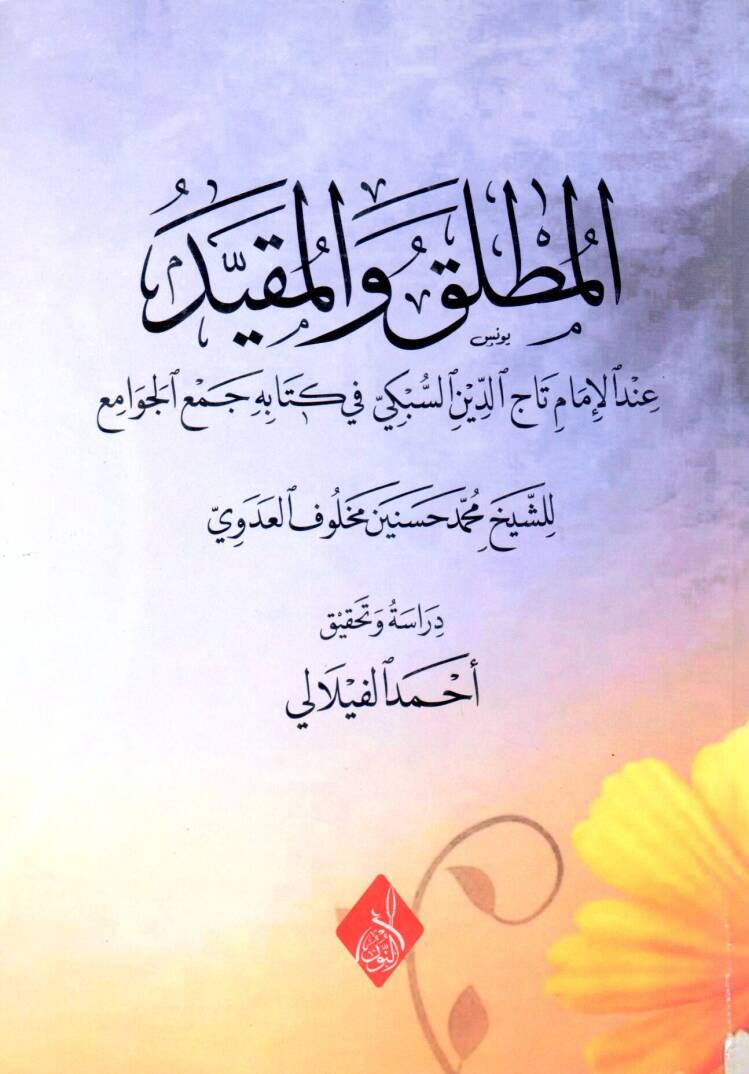 المُطْلَقُ وَالمُقَيَّدُ
يونس
عِنْدَ الإِمَامِ تَاجِ الدِّيْنِ السُّبْكِيِّ فِي كِتَابِهِ جَمْعِ الجَوَامِعِ
لِلشَّيْخِ مُحَمَّد حَسَنَيْن مَخْلُوف العَدَوِيِّ
دِرَاسَةُ وَتَحْقِيْق
أَحْمَد الفِيْلَالِي
النُّور